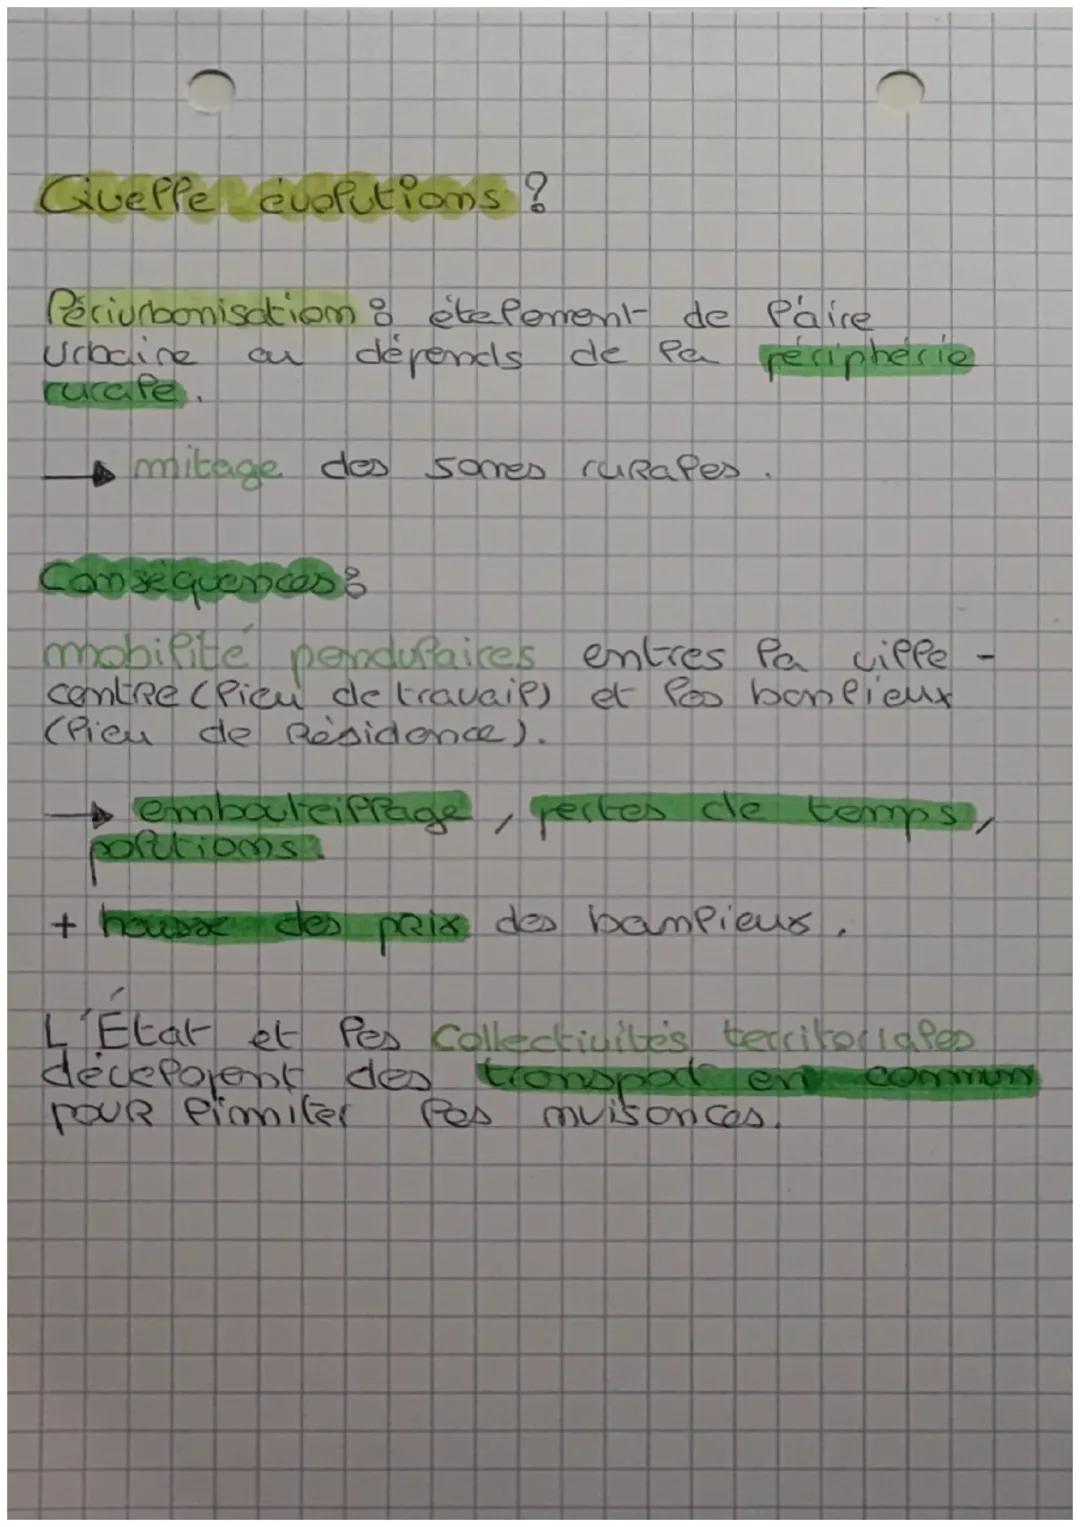 Quelle évolutions ?
Périurbanisation : étalement de l'aire
urbaine au dépends de la périphérie
rurale.
→ mitage des zones rurales.
Conséquences :
mobilité pendulaires entres la ville -
centre (lieu de travail) et les banlieux
(lieu de Résidence).
→ embouteillage, pertes de temps,
polutions.
+ hausse des prix des banlieux.
L'État et les Collectivités territoriales
dévelopent des transport en commun
pour limiter les nuisances.